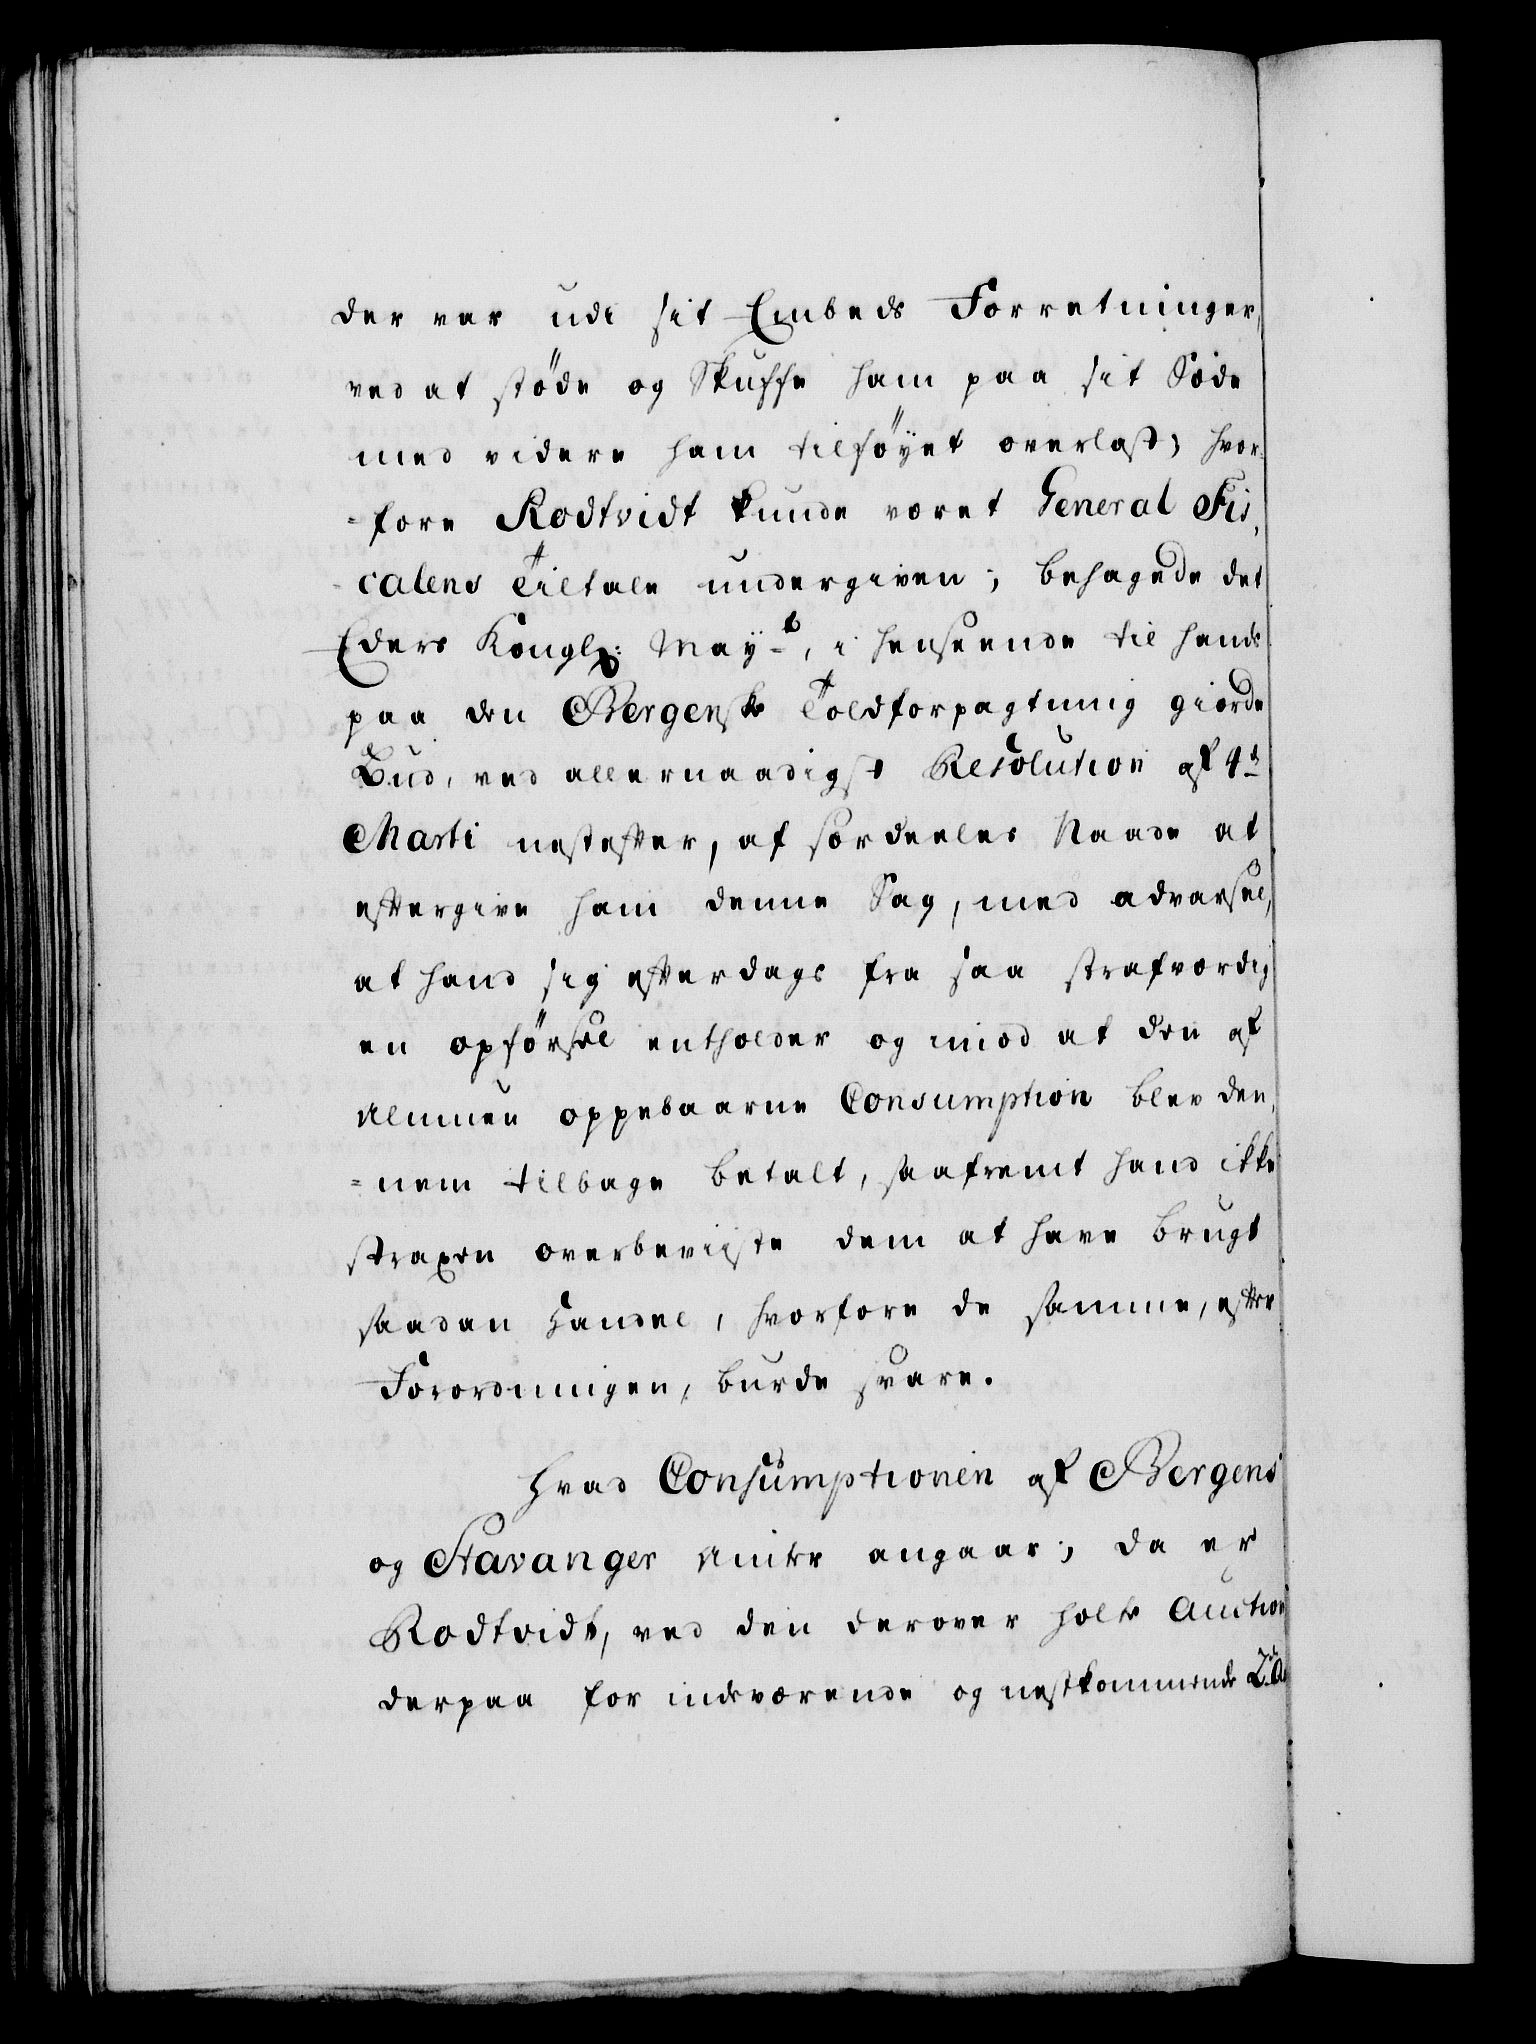 der var udi sit Embeds Forretninger,
ved at støde og Skuffe ham paa sit Sæde
med videre ham tilføyet overlast; hvor-
=fore Rodtvidt kunde været General Fis,
calens Tiltale undergiven; behagede det
Eders Kongl: May-t, i henseende til hands
paa den Bergenske Toldforpagtning giorde
Bud, ved allernaadigst Resolution af 4de
Marti nestefter, af sær deeles Naade at
eftergive ham denne Sag, med advarsel,
at hand sig efterdags fra saa strafværdig
en opførsel entholder og imod at den af
Almuen oppebaarne Consumption blev den,
=nem tilbage betalt, saafremt hand ikke
straxen overbeviiste dem at have brugt
saadan Handel, hvorfore de samme, efter
Forordningen, burde svare.
Hvad Consumptionen af Bergens
og Stavanger Amter angaar; da er
Rodtvidt, ved den derover holte Auction
derpaa for indeværende og nestkommende 2de